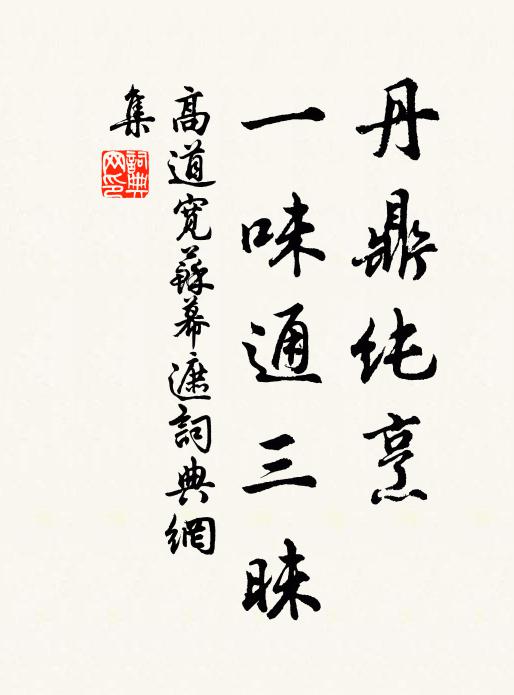 丹鼎纯烹
一味通三昧
高道寬蘇幕遮詞典網
集
詞典
网印